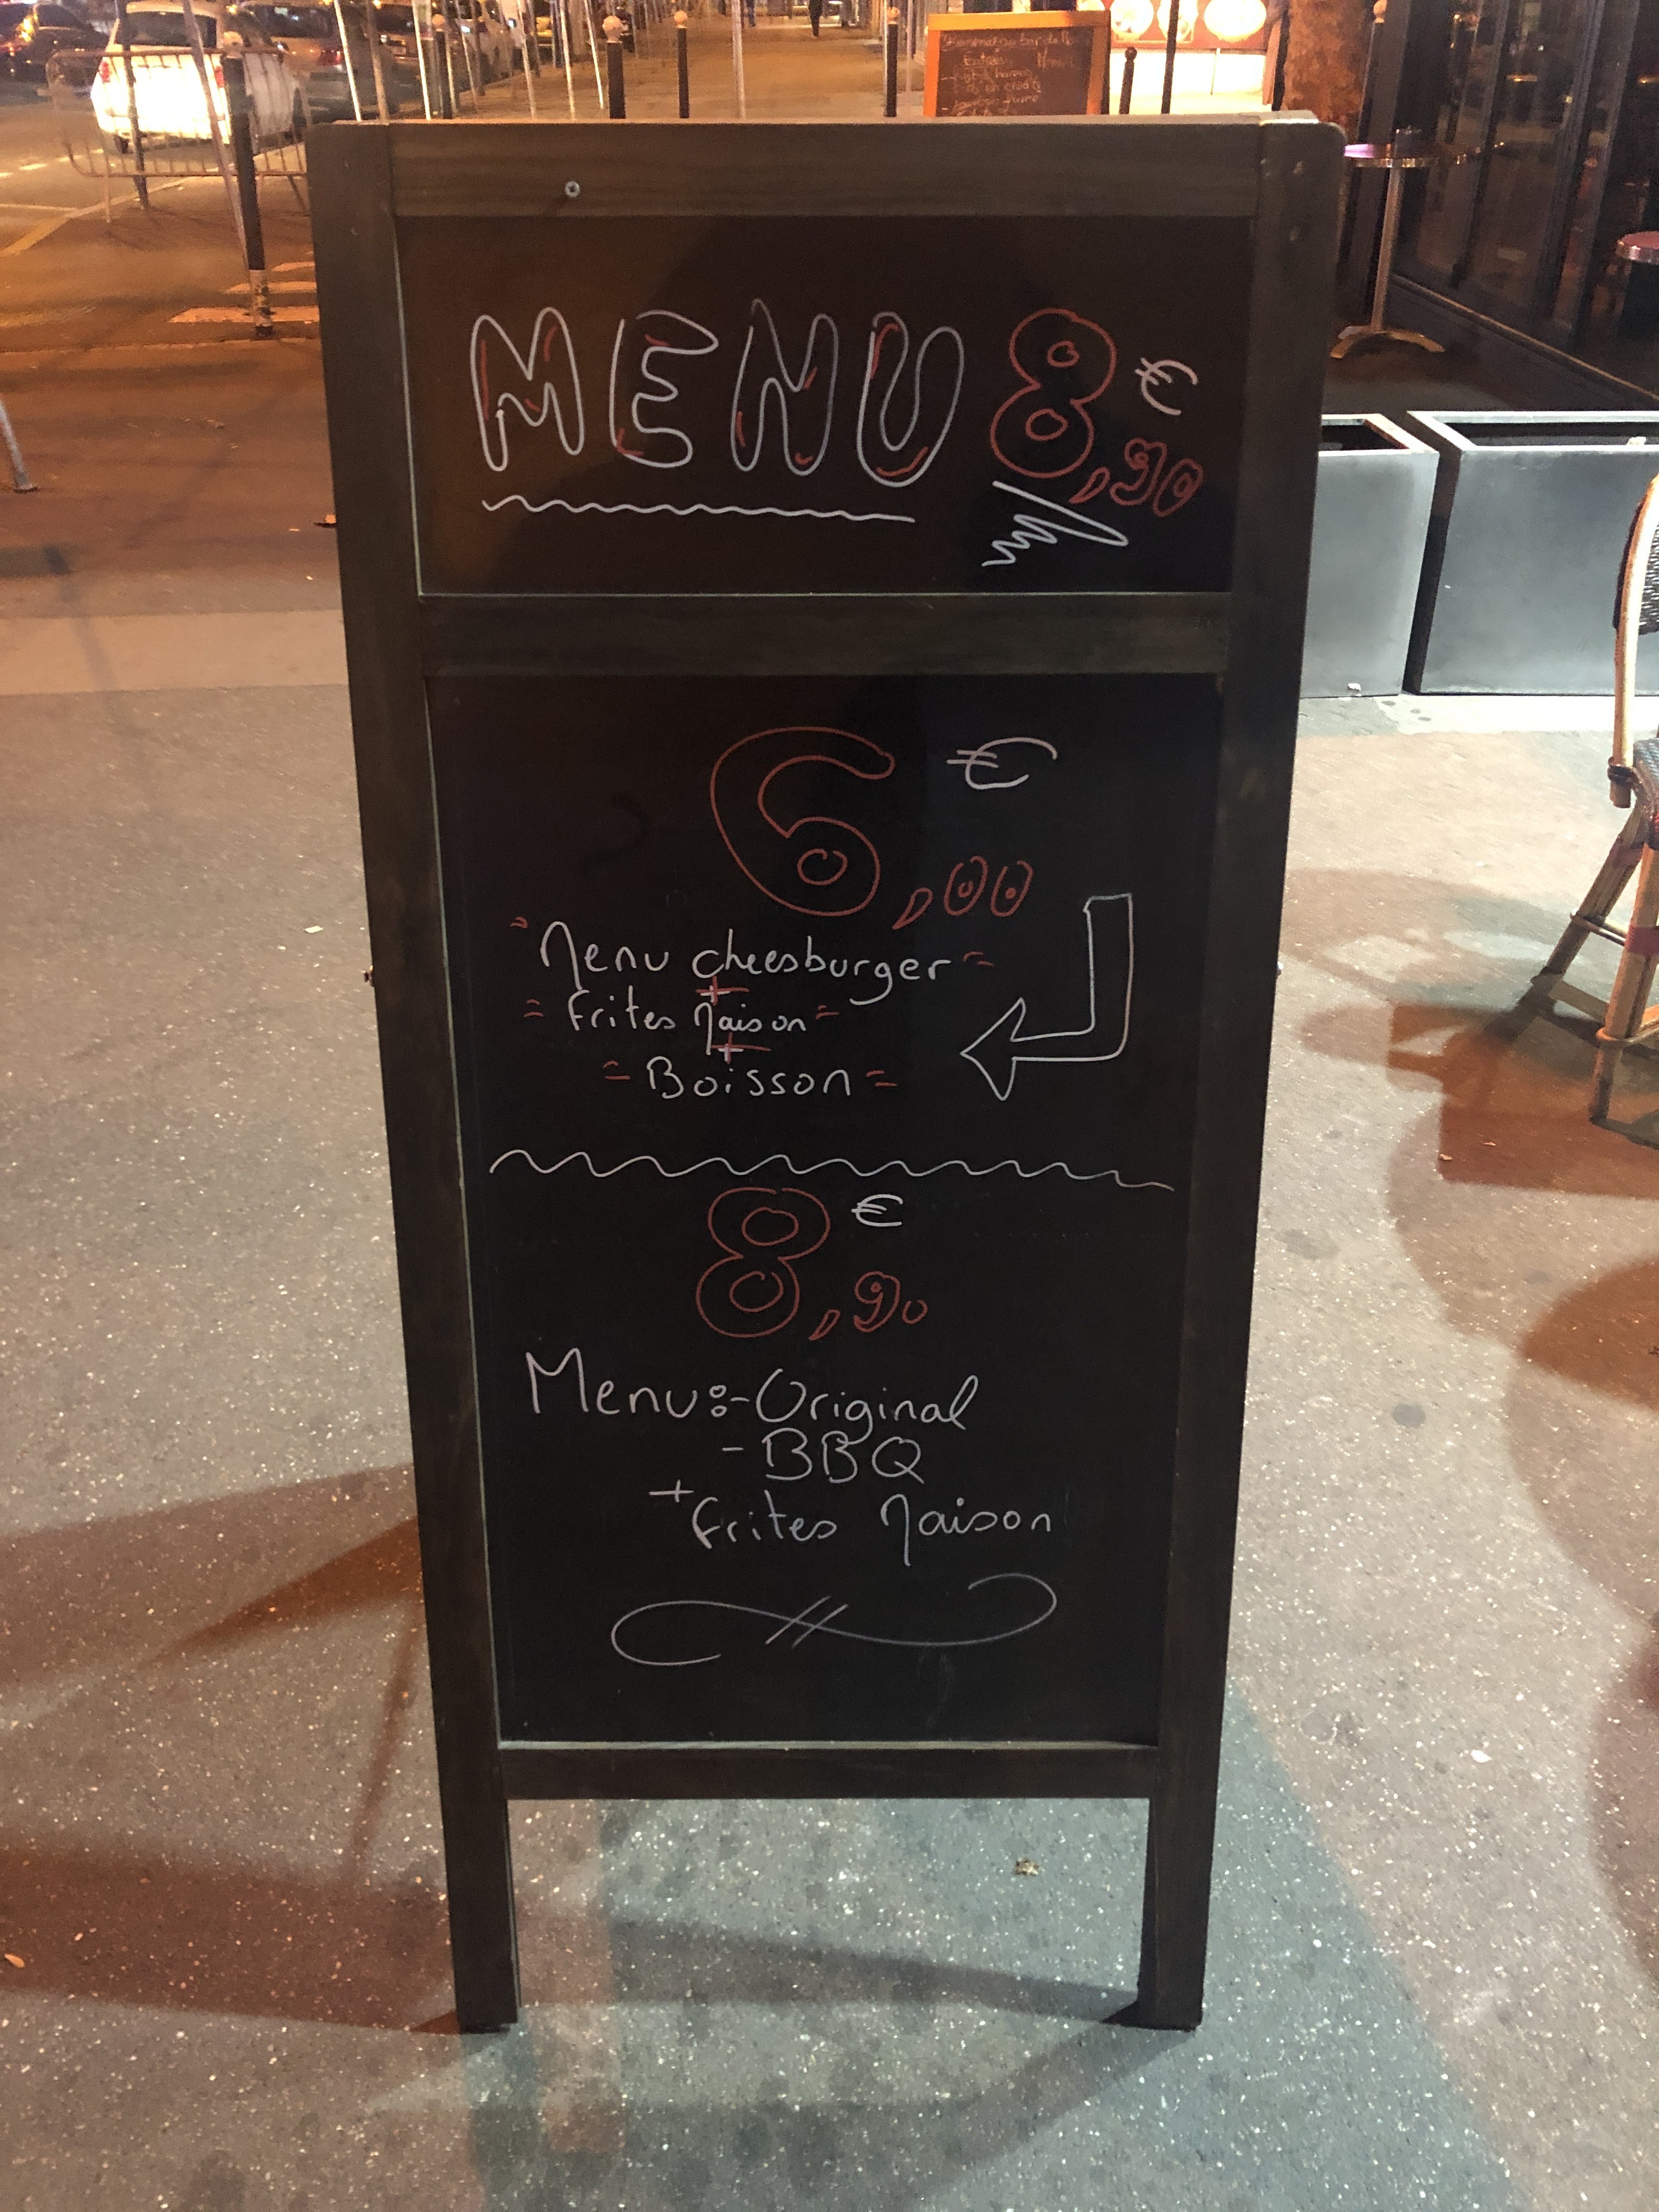 MENU 8,90 €
6,00 €
Menu cheesburger
+
Frites Maison
+
Boisson
8,90 €
Menu:-Original
- BBQ
+ Frites Maison